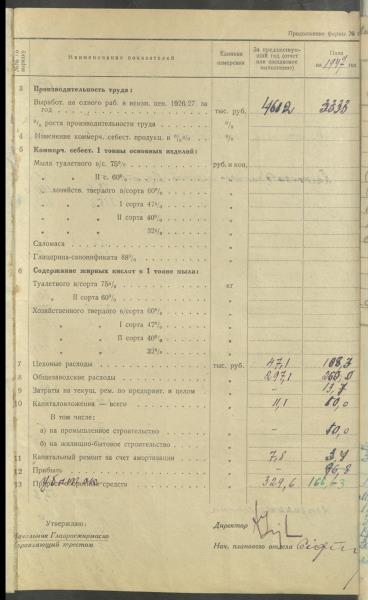 Продолжение формы №
№№ по порядку
Наименование показателей
Единица измерения
За предшествующий год (отчет или ожидаемое выполнение)
План на 1947 год
3 Производительность труда:
Выработ. на одного раб. в неизм. цен. 1926/27. за год тыс. руб. 4602 3338
% роста производительности труда %
4 Изменение коммерч. себест. продукц. в % %
5 Коммерч. себест. 1 тонны основных изделий:
Мыла туалетного в/с. 75% руб. и коп.
" " II с. 60% "
" хозяйств. твердого в/сорта 60% "
" " " I сорта 47% "
" " " II сорта 40% "
" " " 32% "
Саломаса "
Глицерина-сапонификата 88% "
6 Содержание жирных кислот в 1 тонне мыла:
Туалетного в/сорта 75% кг
" II сорта 60% "
Хозяйственного твердого в/сорта 60% "
" " I сорта 47% "
" " II сорта 40% "
" " 32% "
7 Цеховые расходы тыс. руб. 47,1
8 Общезаводские расходы " 297,1
9 Затраты на текущ. рем. по предприят. в целом " –
10 Капиталовложения — всего " 11,1 50,0
В том числе:
а) на промышленное строительство " – 50,0
б) на жилищно-бытовое строительство "
11 Капитальный ремонт за счет амортизации " 7,8
12 Прибыль " –
13 329,6
Утверждаю:
Директор
Начальник Главрасжирмасло
Управляющий трестом
Нач. планового отдела